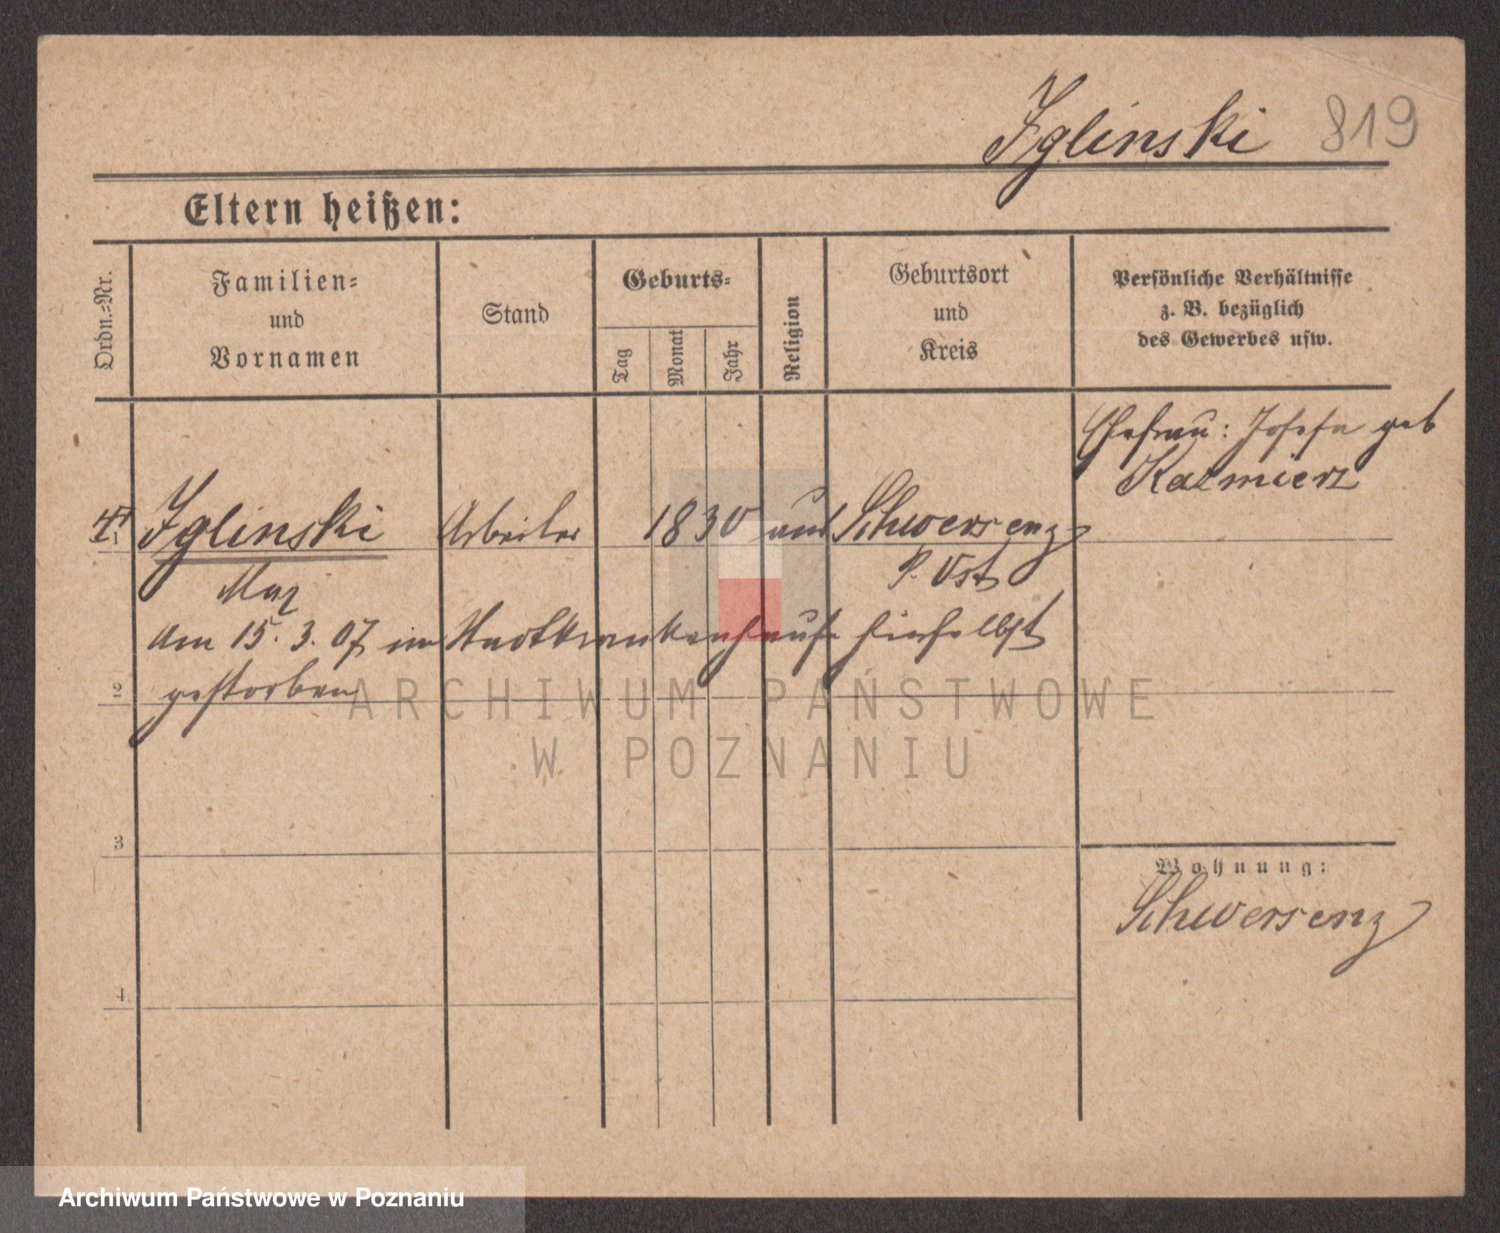 Iglinski 819
Eltern heißen:
Ordn.=Nr.
Familien=
und
Vornamen
Stand
Geburts=
Tag
Monat
Jahr
Religion
Geburtsort
und
Kreis
Persönliche Verhältnisse
z. B. bezüglich
des Gewerbes usw.
Ehefrau: Josefa geb
Kazmierz
1 Iglinski Arbeiter 1830 aus Schwersenz
P. Ost
am 15. 3. 07 im Stadtkrankenhause hierselbst
2 gestorben
3
Wohnung:
Schwersenz
4
ARCHIWUM PAŃSTWOWE
W POZNANIU
Archiwum Państwowe w Poznaniu